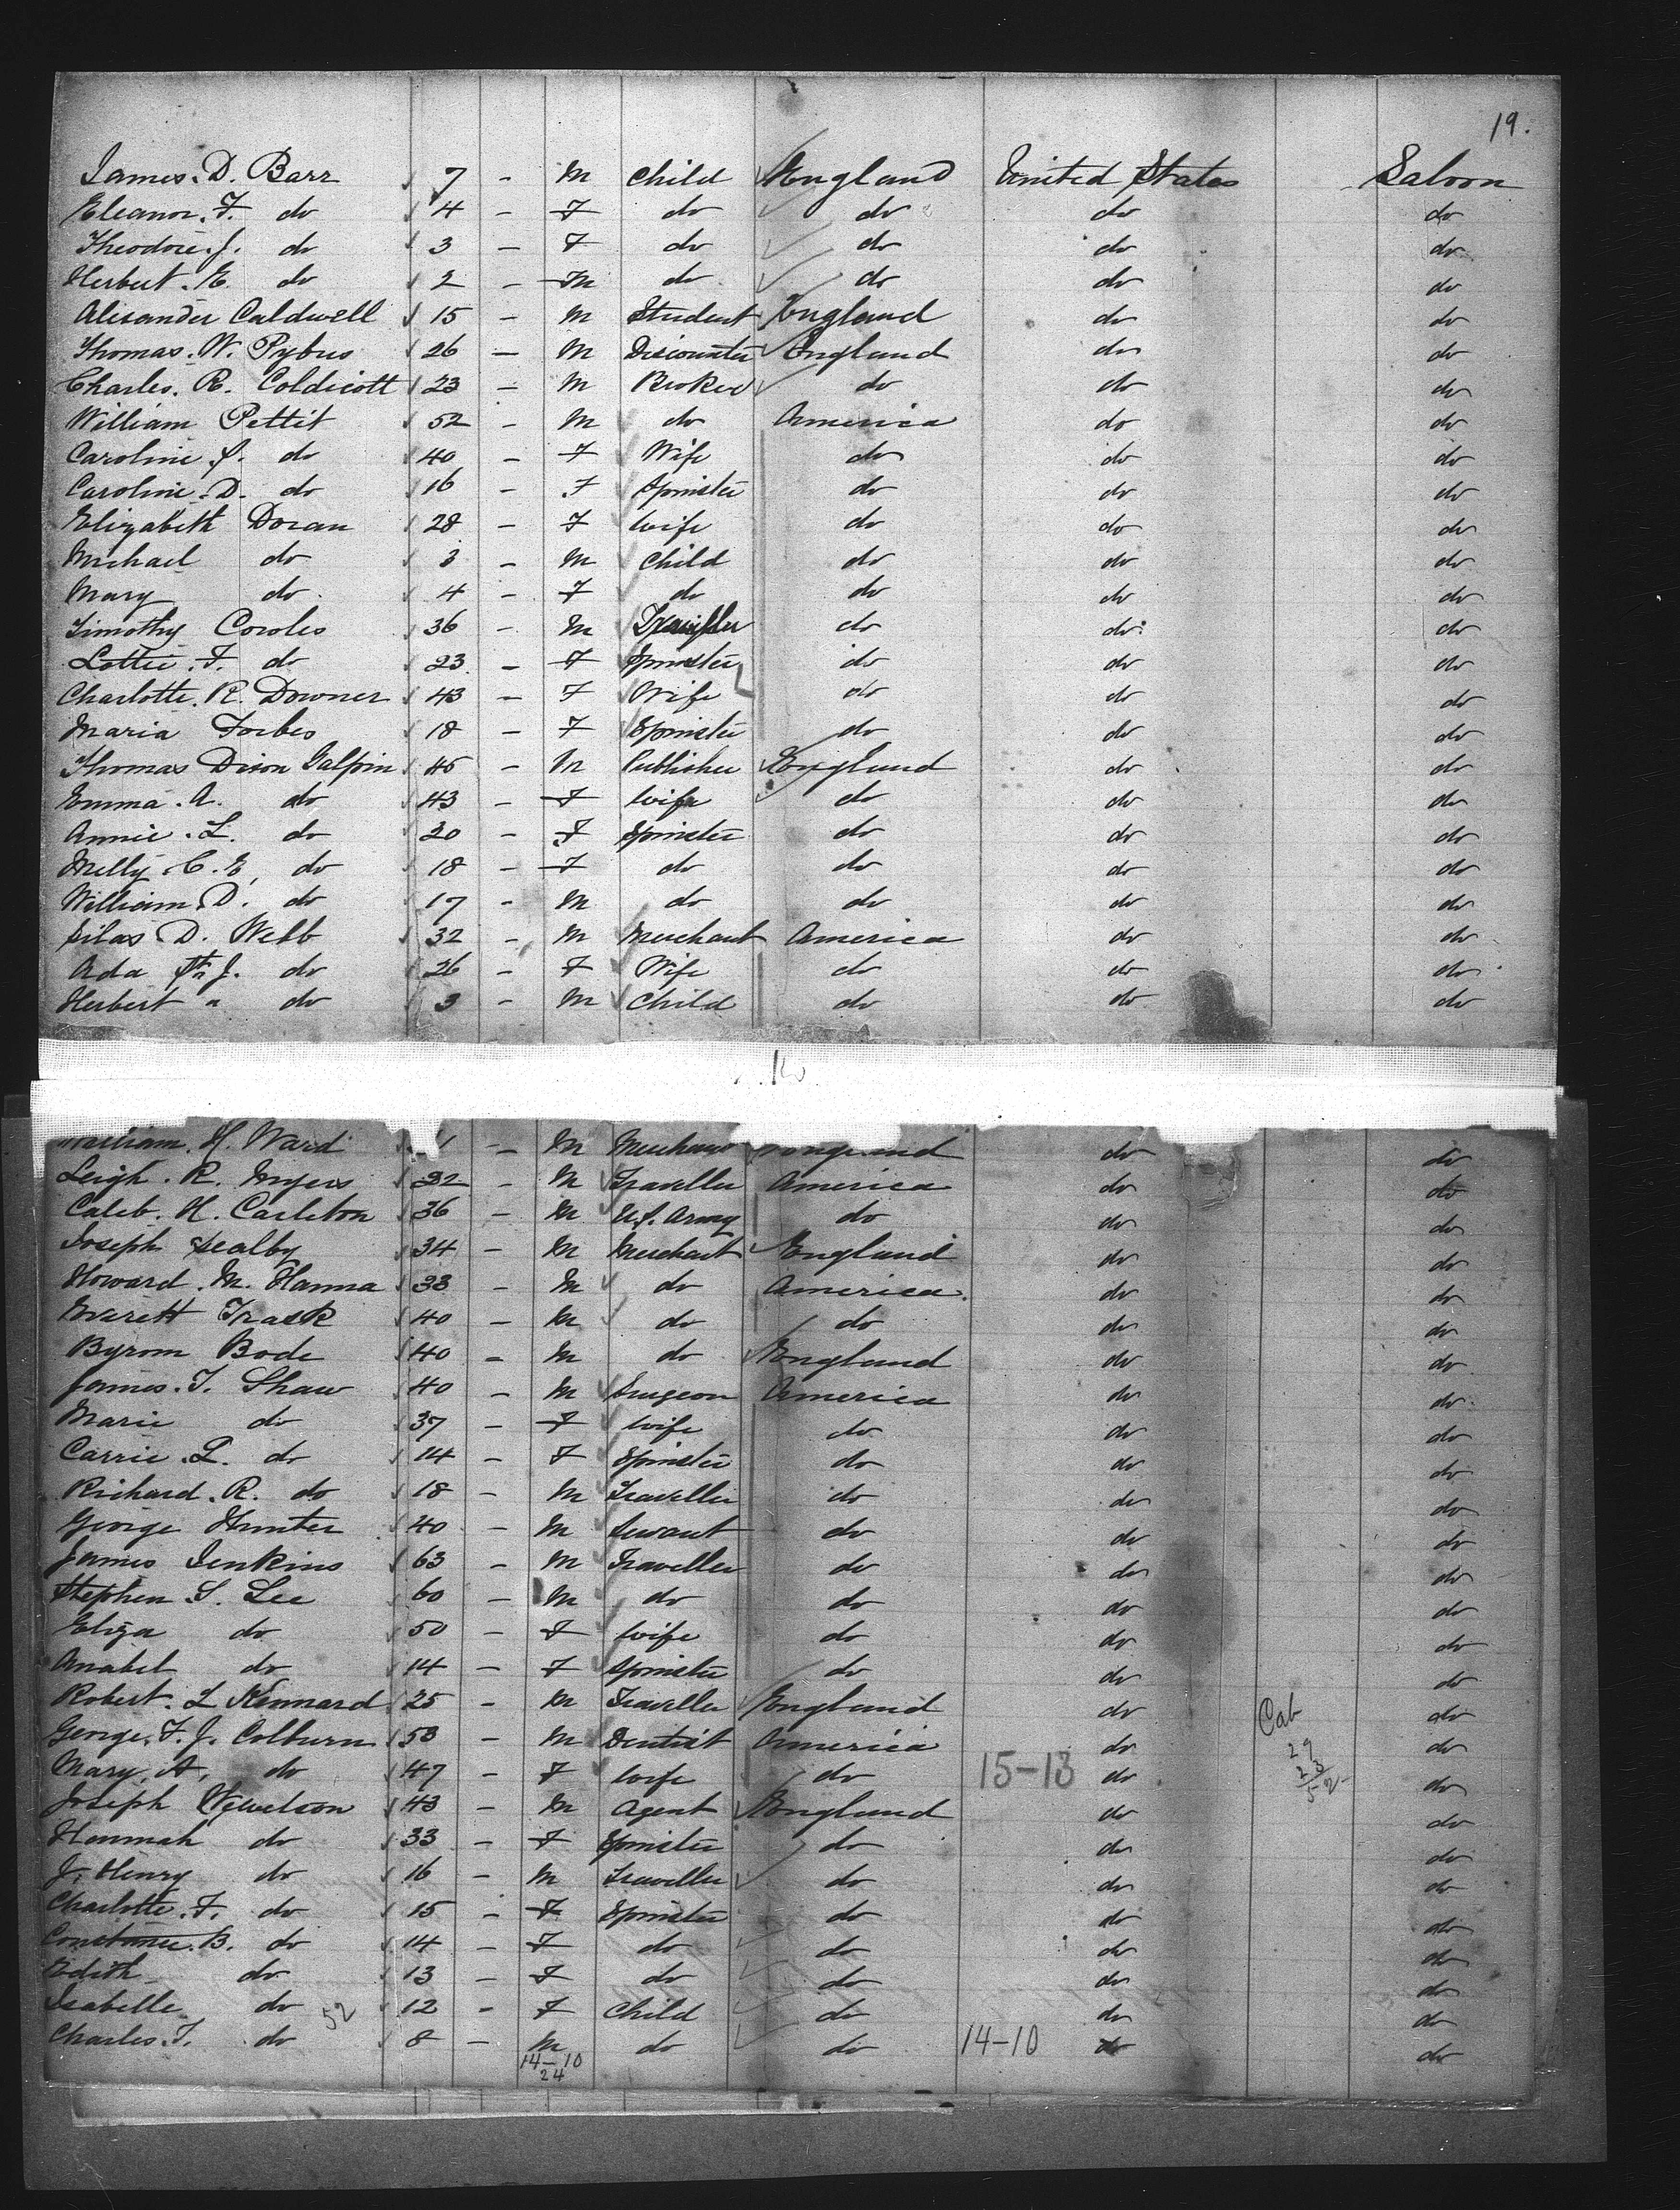 19.
James. D. Barr 7 - M Child England United States Saloon
Eleanor. F. do 4 - F do do do do
Theodore. J. do 3 - F do do do do
Herbert. E. do 2 - M do do do do
Alexander Caldwell 15 - M Student England do do
Thomas. W. Pybus 26 - M Discounter England do do
Charles. R. Coldicott 23 - M Broker do do do
William Pettit 52 - M do America do do
Caroline. S. do 40 - F Wife do do do
Caroline. D. do 16 - F Spinster do do do
Elizabeth Doran 28 - F Wife do do do
Michael do 3 - M Child do do do
Mary do 4 - F do do do do
Timothy Cowles 36 - M Traveller do do do
Lottie. F. do 23 - F Spinster do do do
Charlotte. R. Downer 43 - F Wife do do do
Maria Forbes 18 - F Spinster do do do
Thomas Dixon Galpin 45 - M Publisher England do do
Emma. A. do 43 - F Wife do do do
Annie. L. do 20 - F Spinster do do do
Melly. C. E. do 18 - F do do do do
William. D. do 17 - M do do do do
Silas D. Webb 32 - M Merchant America do do
Ada J. do 26 - F Wife do do do
Herbert a do 3 - M Child do do do
William. H. Ward - M Merchant England do do
Leigh. R. Myers 32 - M Traveller America do do
Caleb. H. Carleton 36 - M U.S. Army do do do
Joseph Sealby 34 - M Merchant England do do
Howard. M. Hanna 33 - M do America. do do
Everett Trask 40 - M do do do do
Byrom Bode 40 - M do England do do
James. T. Shaw 40 - M Surgeon America do do
Marie do 37 - F Wife do do do
Carrie. P. do 14 - F Spinster do do do
Richard. R. do 18 - M Traveller do do do
George Hunter 40 - M Servant do do do
James Jenkins 63 - M Traveller do do do
Stephen. S. Lee 60 - M do do do do
Eliza do 50 - F Wife do do do
Anabel do 14 - F Spinster do do do
Robert. L Kennard 25 - M Traveller England do Cab do
George. F. J. Colburn 53 - M Dentist America do 29 do
Mary. A. do 47 - F Wife do 15-13 do 23 do
52
Joseph Hewelson 43 - M Agent England do do
Hannah do 33 - F Spinster do do do
J. Henry do 16 - M Traveller do do do
Charlotte. F. do 15 - F Spinster do do do
Constance. B. do 14 - F do do do do
Edith do 13 - F do do do do
Isabelle do 52 12 - F Child do do do
Charles. T. do 8 - M do do 14-10 do do
14-10
24